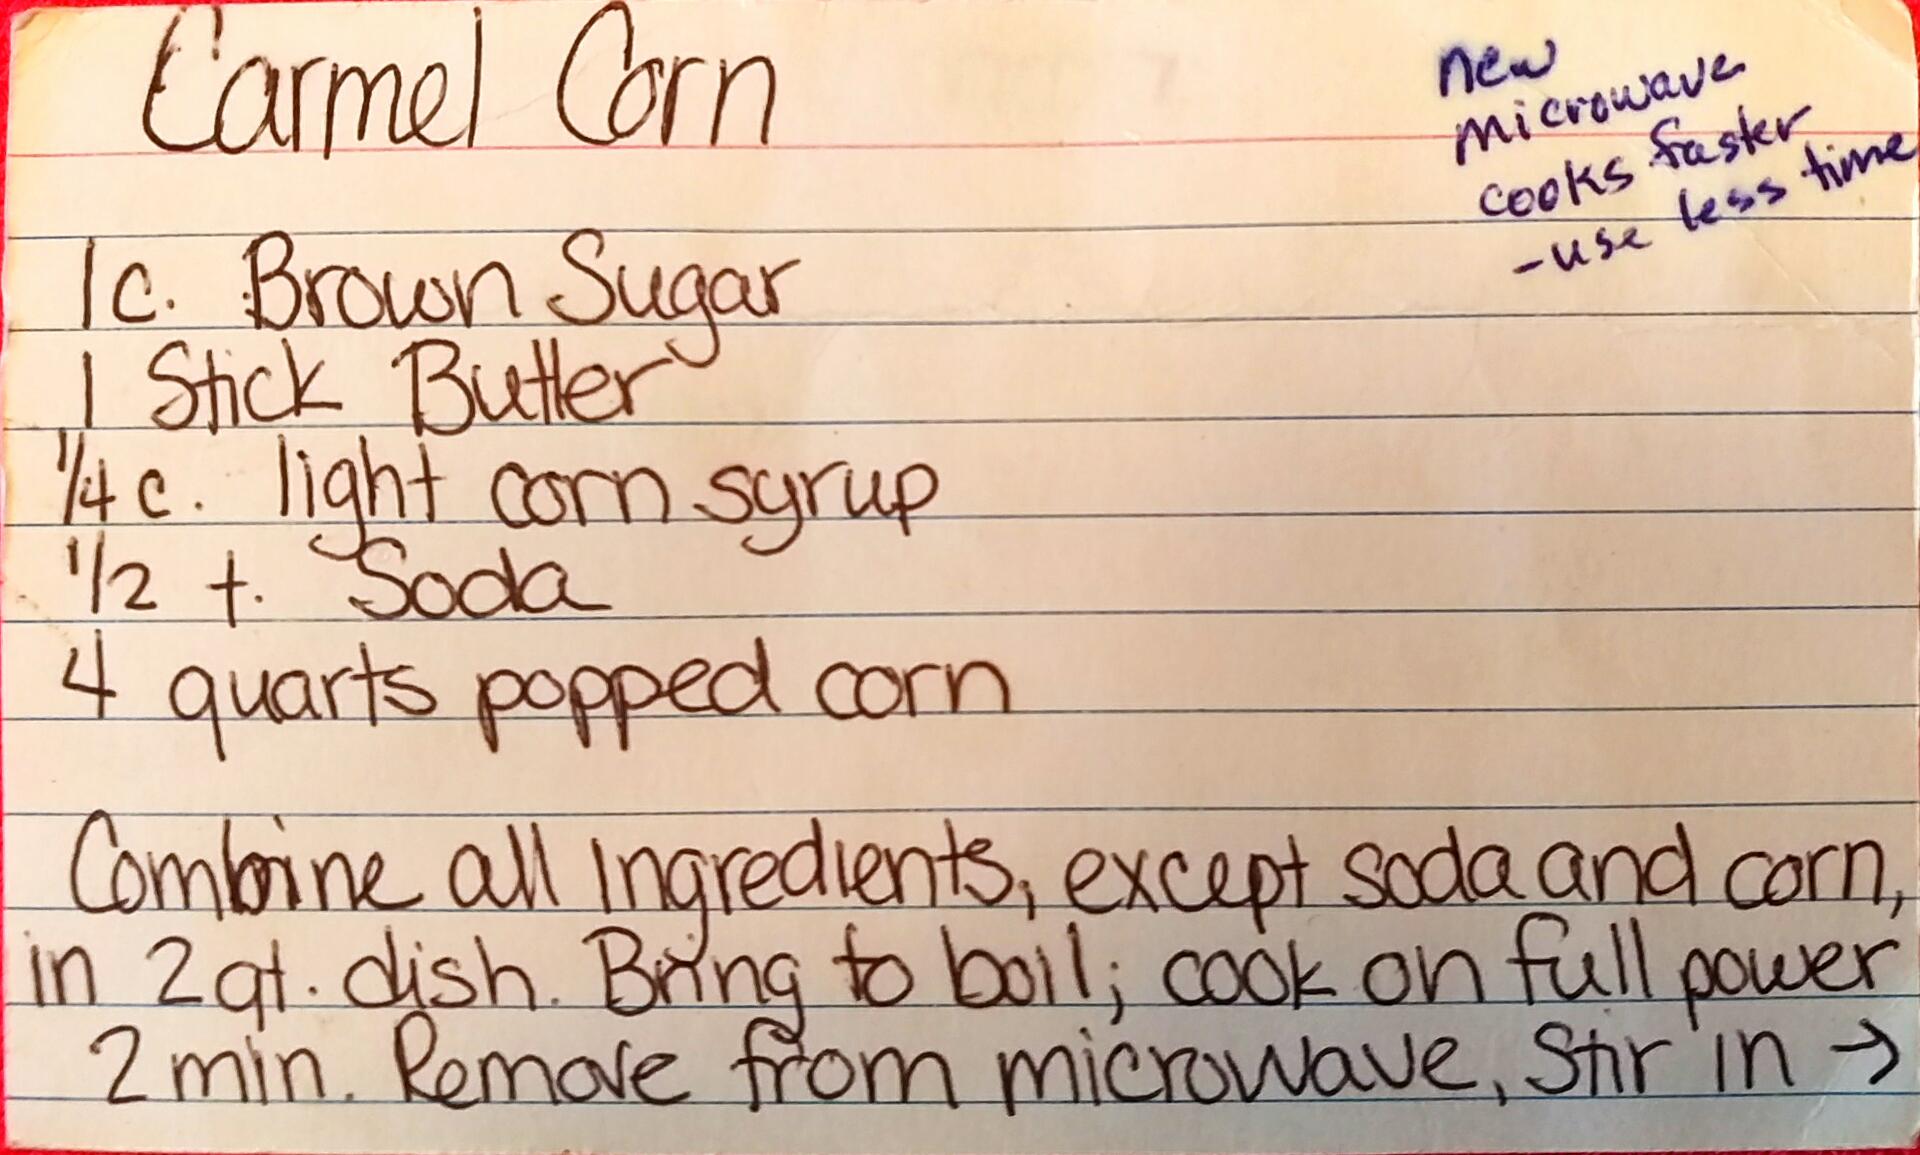 Carmel Corn
new
microwave
cooks faster
-use less time
1c. Brown Sugar
1 Stick Butter
1/4 c. light corn syrup
1/2 t. Soda
4 quarts popped corn
Combine all ingredients, except soda and corn,
in 2 qt. dish. Bring to boil; cook on full power
2 min. Remove from microwave, Stir in →